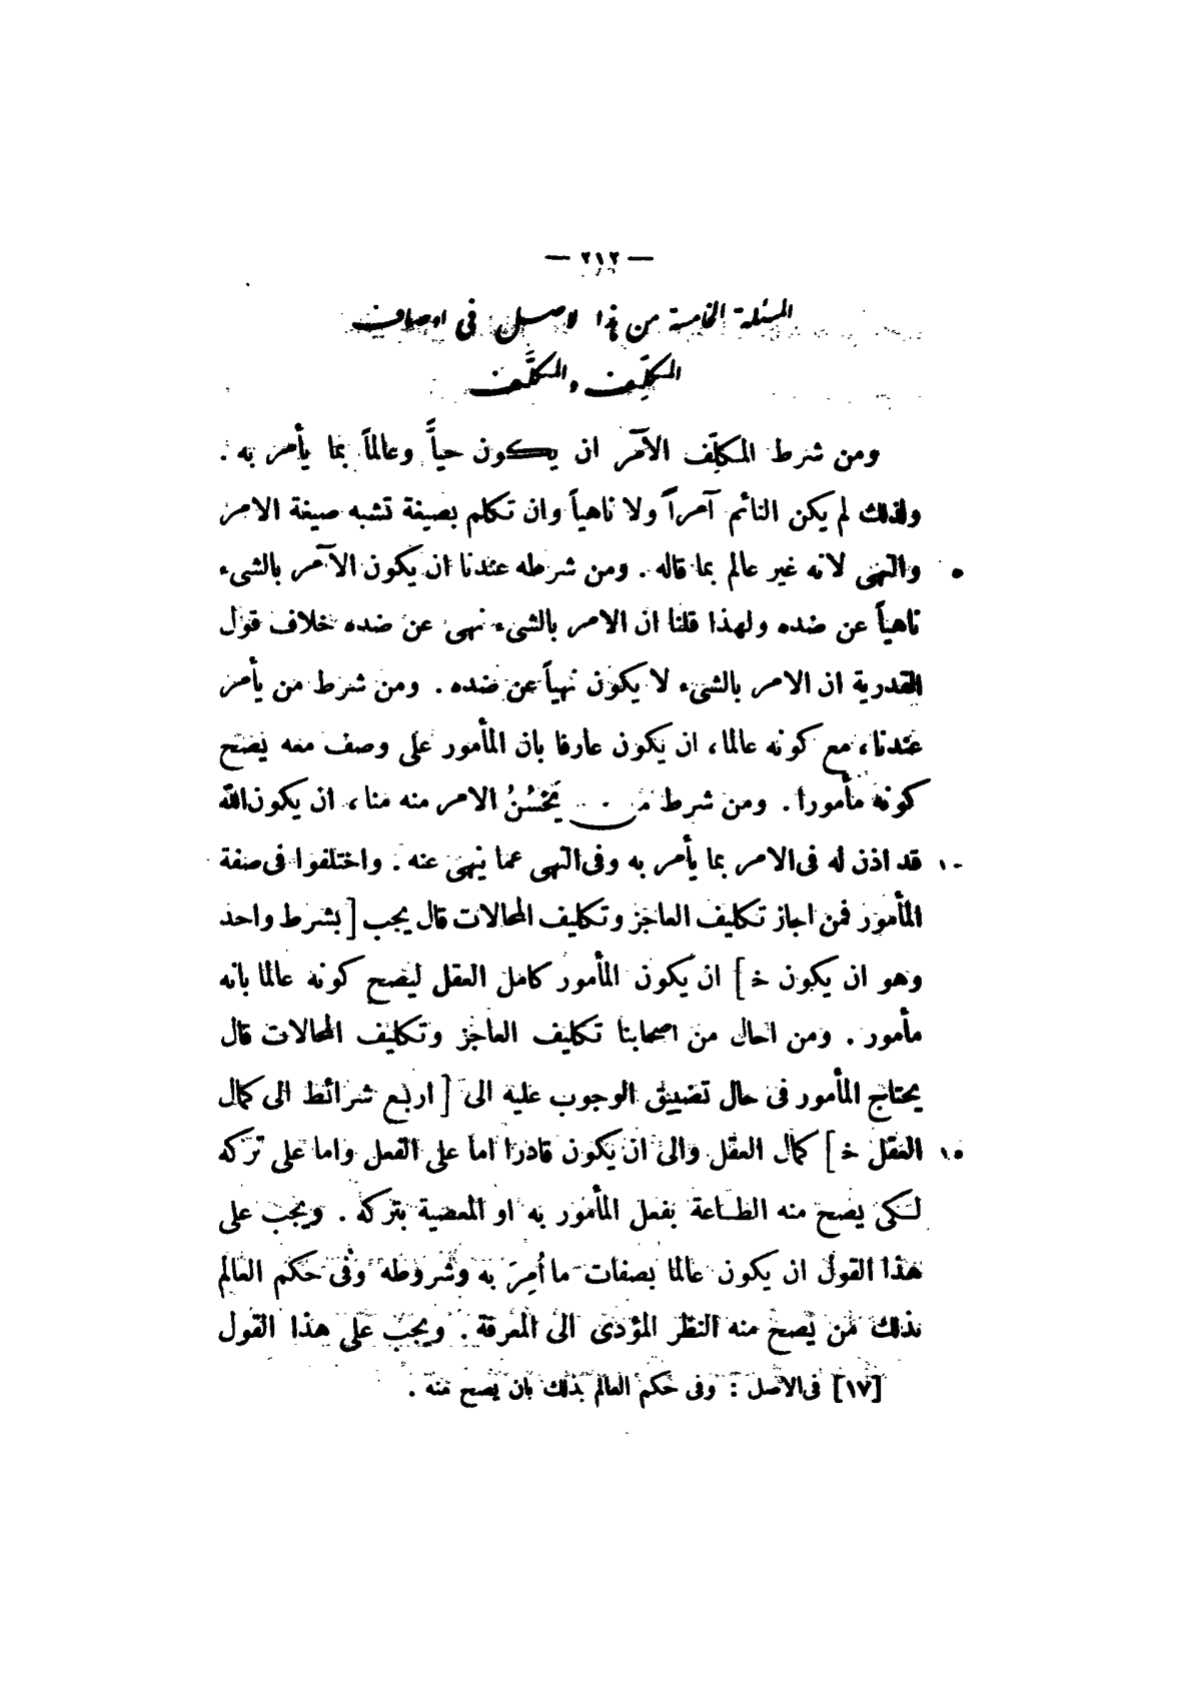 — ٢١٢ —
المسئلة الخامسة من هذا الاصل فى اوصاف
المكلِّف والمكلَّف
ومن شرط المكلِّف الآمر ان يكون حياً وعالماً بما يأمر به .
ولذلك لم يكن النائم آمراً ولا ناهياً وان تكلم بصيغة تشبه صيغة الامر
٥ والنهى لانه غير عالم بما قاله . ومن شرطه عندنا ان يكون الآمر بالشىء
ناهياً عن ضده ولهذا قلنا ان الامر بالشىء نهى عن ضده خلاف قول
القدرية ان الامر بالشىء لا يكون نهياً عن ضده . ومن شرط من يأمر
عندنا ، مع كونه عالما ، ان يكون عارفا بان المأمور على وصف معه يصح
كونه مأمورا . ومن شرط من يَحْسُنُ الامر منه منا ، ان يكون الله
١٠ قد اذن له فى الامر بما يأمر به وفى النهى عما ينهى عنه . واختلفوا فى صفة
المأمور فمن اجاز تكليف العاجز وتكليف المحالات قال يجب [ بشرط واحد
وهو ان يكون خ ] ان يكون المأمور كامل العقل ليصح كونه عالما بانه
مأمور . ومن احال من اصحابنا تكليف العاجز وتكليف المحالات قال
يحتاج المأمور فى حال تضييق الوجوب عليه الى [ اربع شرائط الى كمال
١٥ العقل خ ] كمال العقل والى ان يكون قادرا اما على الفعل واما على تركه
لكى يصح منه الطاعة بفعل المأمور به او المعصية بتركه . ويجب على
هذا القول ان يكون عالما بصفات ما اُمِرَ به وشروطه وفى حكم العالم
بذلك مَن يصح منه النظر المؤدى الى المعرفة . ويجب على هذا القول
[١٧] فى الاصل : وفى حكم العالم بذلك بان يصح منه .